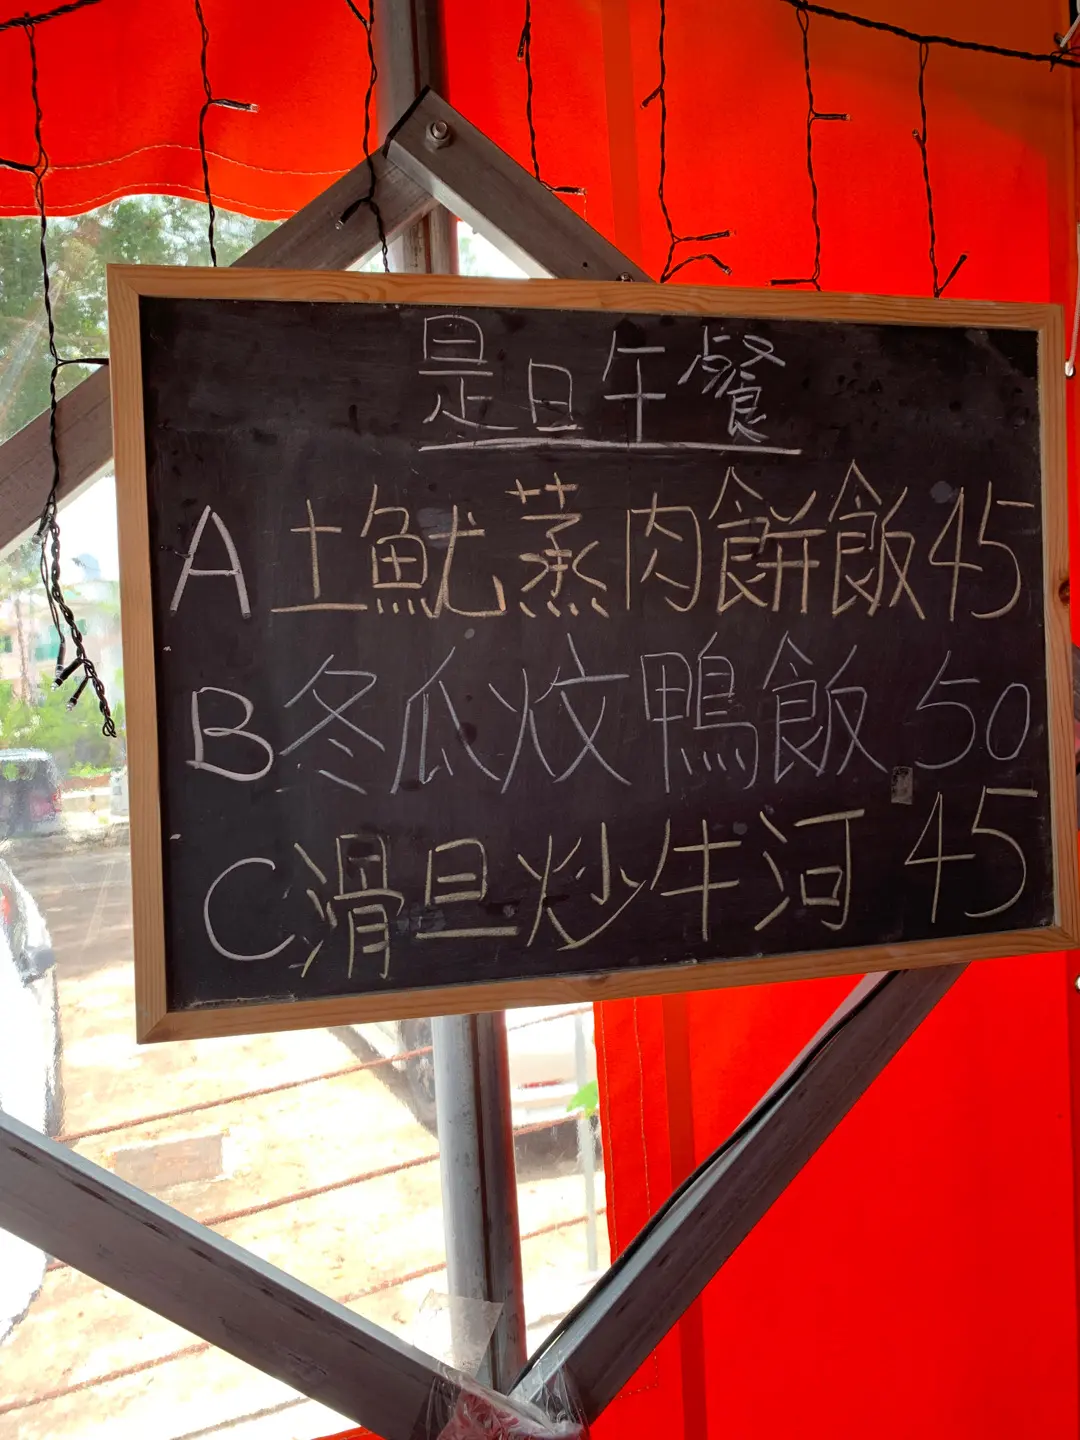 是日午餐
A 土魷蒸肉餅飯 45
B 冬瓜炆鴨飯 50
C 滑旦炒牛河 45